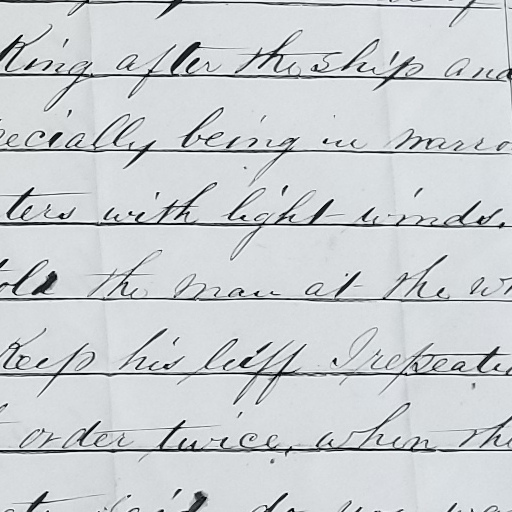 King after the ship and
ecially being in narro
ters with light winds.
told the man at the wh
Keep his luff I repeated
order twice, when the
said do you wa